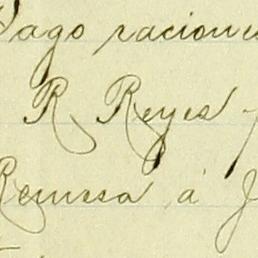 Pago raciones
R Reyes
Remesa á J